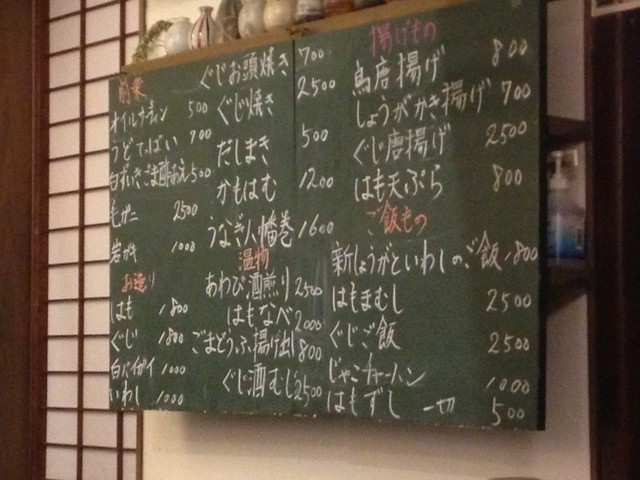 前菜
オイルサーディン 500
うどてっぱい 700
白ずいきごま酢あえ 500
毛ガニ 2500
岩がき 1000
お造り
はも 1800
ぐじ 1800
白バイガイ 1000
いわし 1000
ぐじお頭焼き 700
ぐじ焼き 2500
だしまき 500
かもはむ 1200
うなぎ八幡巻 1600
温物
あわび酒煎り 2500
はもなべ 2000
ごまどうふ揚げ出し 800
ぐじ酒むし 2500
揚げもの
鳥唐揚げ 800
しょうがかき揚げ 700
ぐじ唐揚げ 2500
はも天ぷら 800
ご飯もの
新しょうがといわしのご飯 1800
はもまむし 2500
ぐじご飯 2500
じゃこチャーハン 1000
はもずし 一切 500